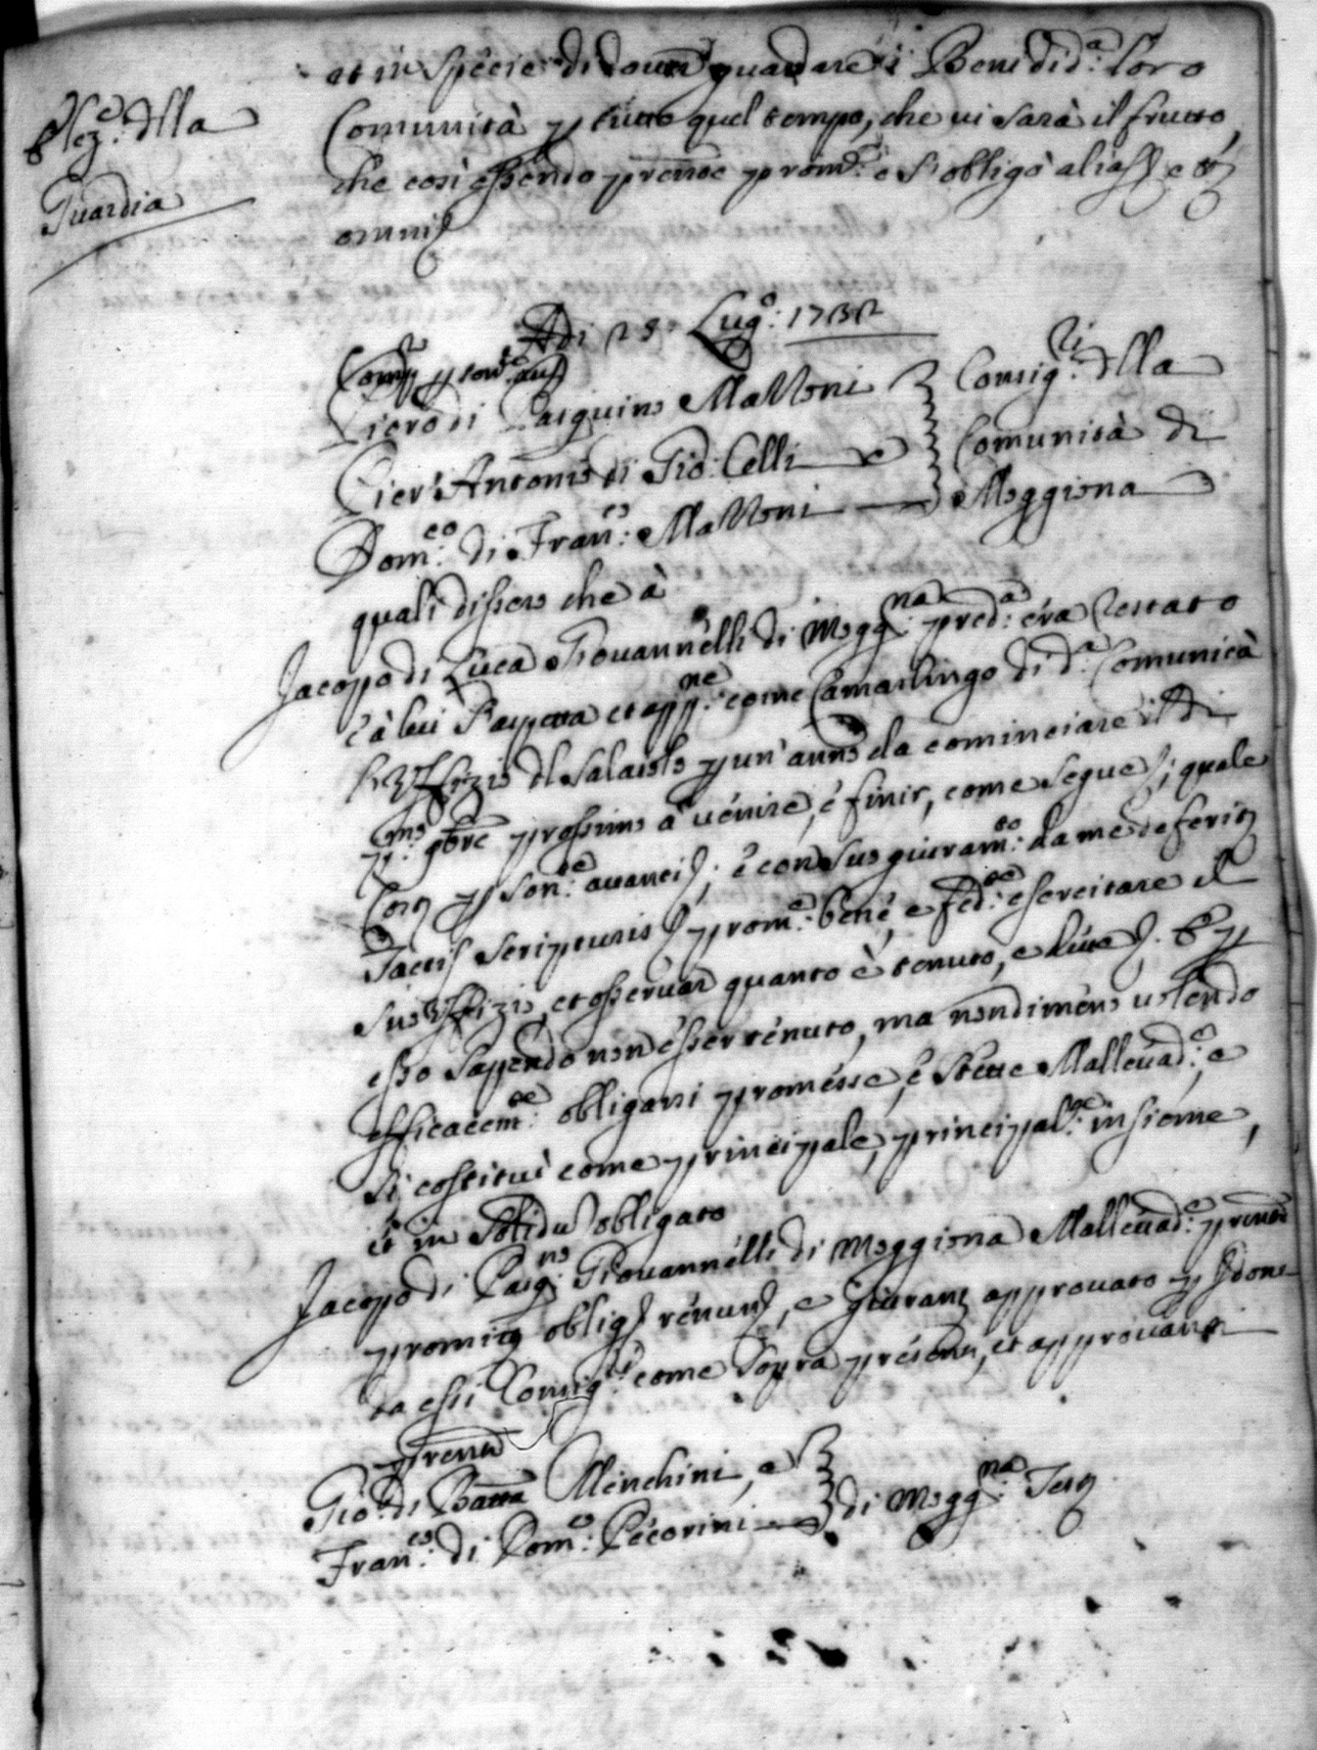 Elez.e d'lla
Guardia
et in specie di dover guardare i Beni di d.a loro
Comunità p tutto quel tempo, che vi sarà il frutto,
che così essendo prende prom.e e si obligò alias
omnis
Adi 28: Lug.o: 1732
Comp p
Piero di Pasquino Mattoni
Pier' Antonio di Gio: Celli e
Dom.co: di Fran.co: Mattoni
Consig.ri: d'lla
Comunità di
Moggiona
quali dissero che à
Jacopo di Luca Giovannelli di Mogg.na: pred.a: era restato
è à lui s'aspetta et app.ne: come Camarlingo di d.a Comunità
l'Uffizio d'l Salaiolo p un'anno da cominciare il dì
p.mo: 9bre prossimo à venire, e finir, come segue; quale
p avanti; è con suo giuram.to: da me deferito
Tactis Scripturis prom.e: bene, e fed.te: esercitare il
suo Uffizio, et osservar quanto è tenuto, e E p
esso sapendo non esser tenuto, ma nondimeno volendo
efficacem.te: obligarsi promesse, è stette Mallevad.e: e
si costituì come principale, principal.te: insieme,
et in solidu obligato
Jacopo di Pasq.no: Giovannelli di Moggiona Mallevad.e:
oblig renun, e approvato p Idone
da essi Consig.ri: come sopra presenti, et approvanti
Gio: di Batta Menchini, e
Fran.co: di Dom.co: Pecorini
di Mogg.na: Test